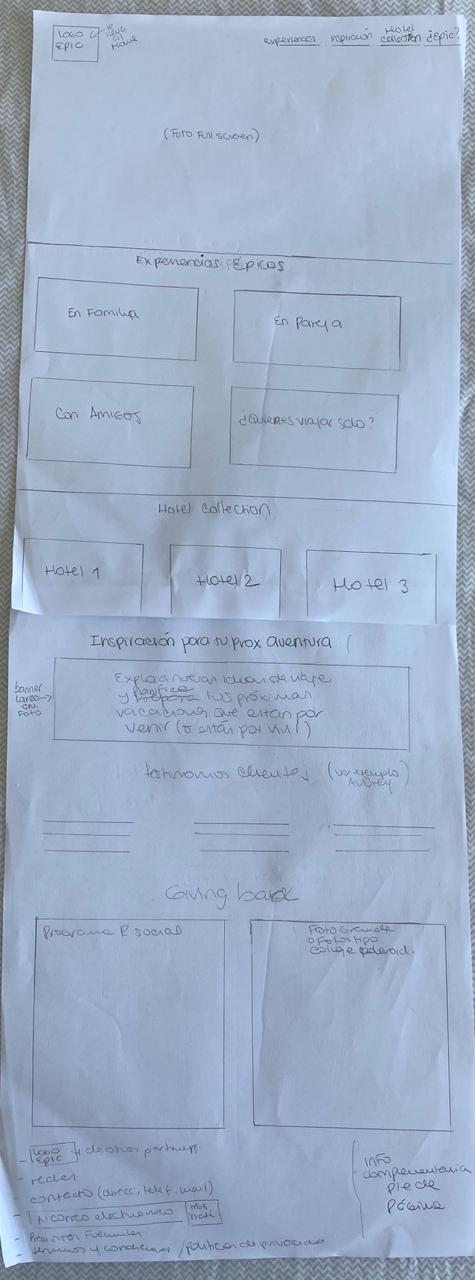 LOGO
EPIC
te
lleva
al
Home
experiencias inspiración Hotel
collection ¿Epic?
(Foto Full screen)
Experiencias Épicas
En Familia
En Pareja
Con Amigos
¿Quieres viajar solo?
Hotel Collection
Hotel 1
Hotel 2
Hotel 3
Inspiración para tu prox aventura
banner
largo
con
Foto
Explora nuevas ideas de viaje
y planifica tus próximas
vacaciones que están por
venir (o están por vivir)
testimonios clientes (ver ejemplo
Audrey)
Giving back
Programa R social
Foto Grande
o Fotos tipo
collage polaroid.
- LOGO
EPIC + de otros partners
- redes
contacto (direcc, telef, mail)
- Tu correo electronico
-
- terminos y condiciones / politicas de privacidad
INFO
complementaria
pie de
página